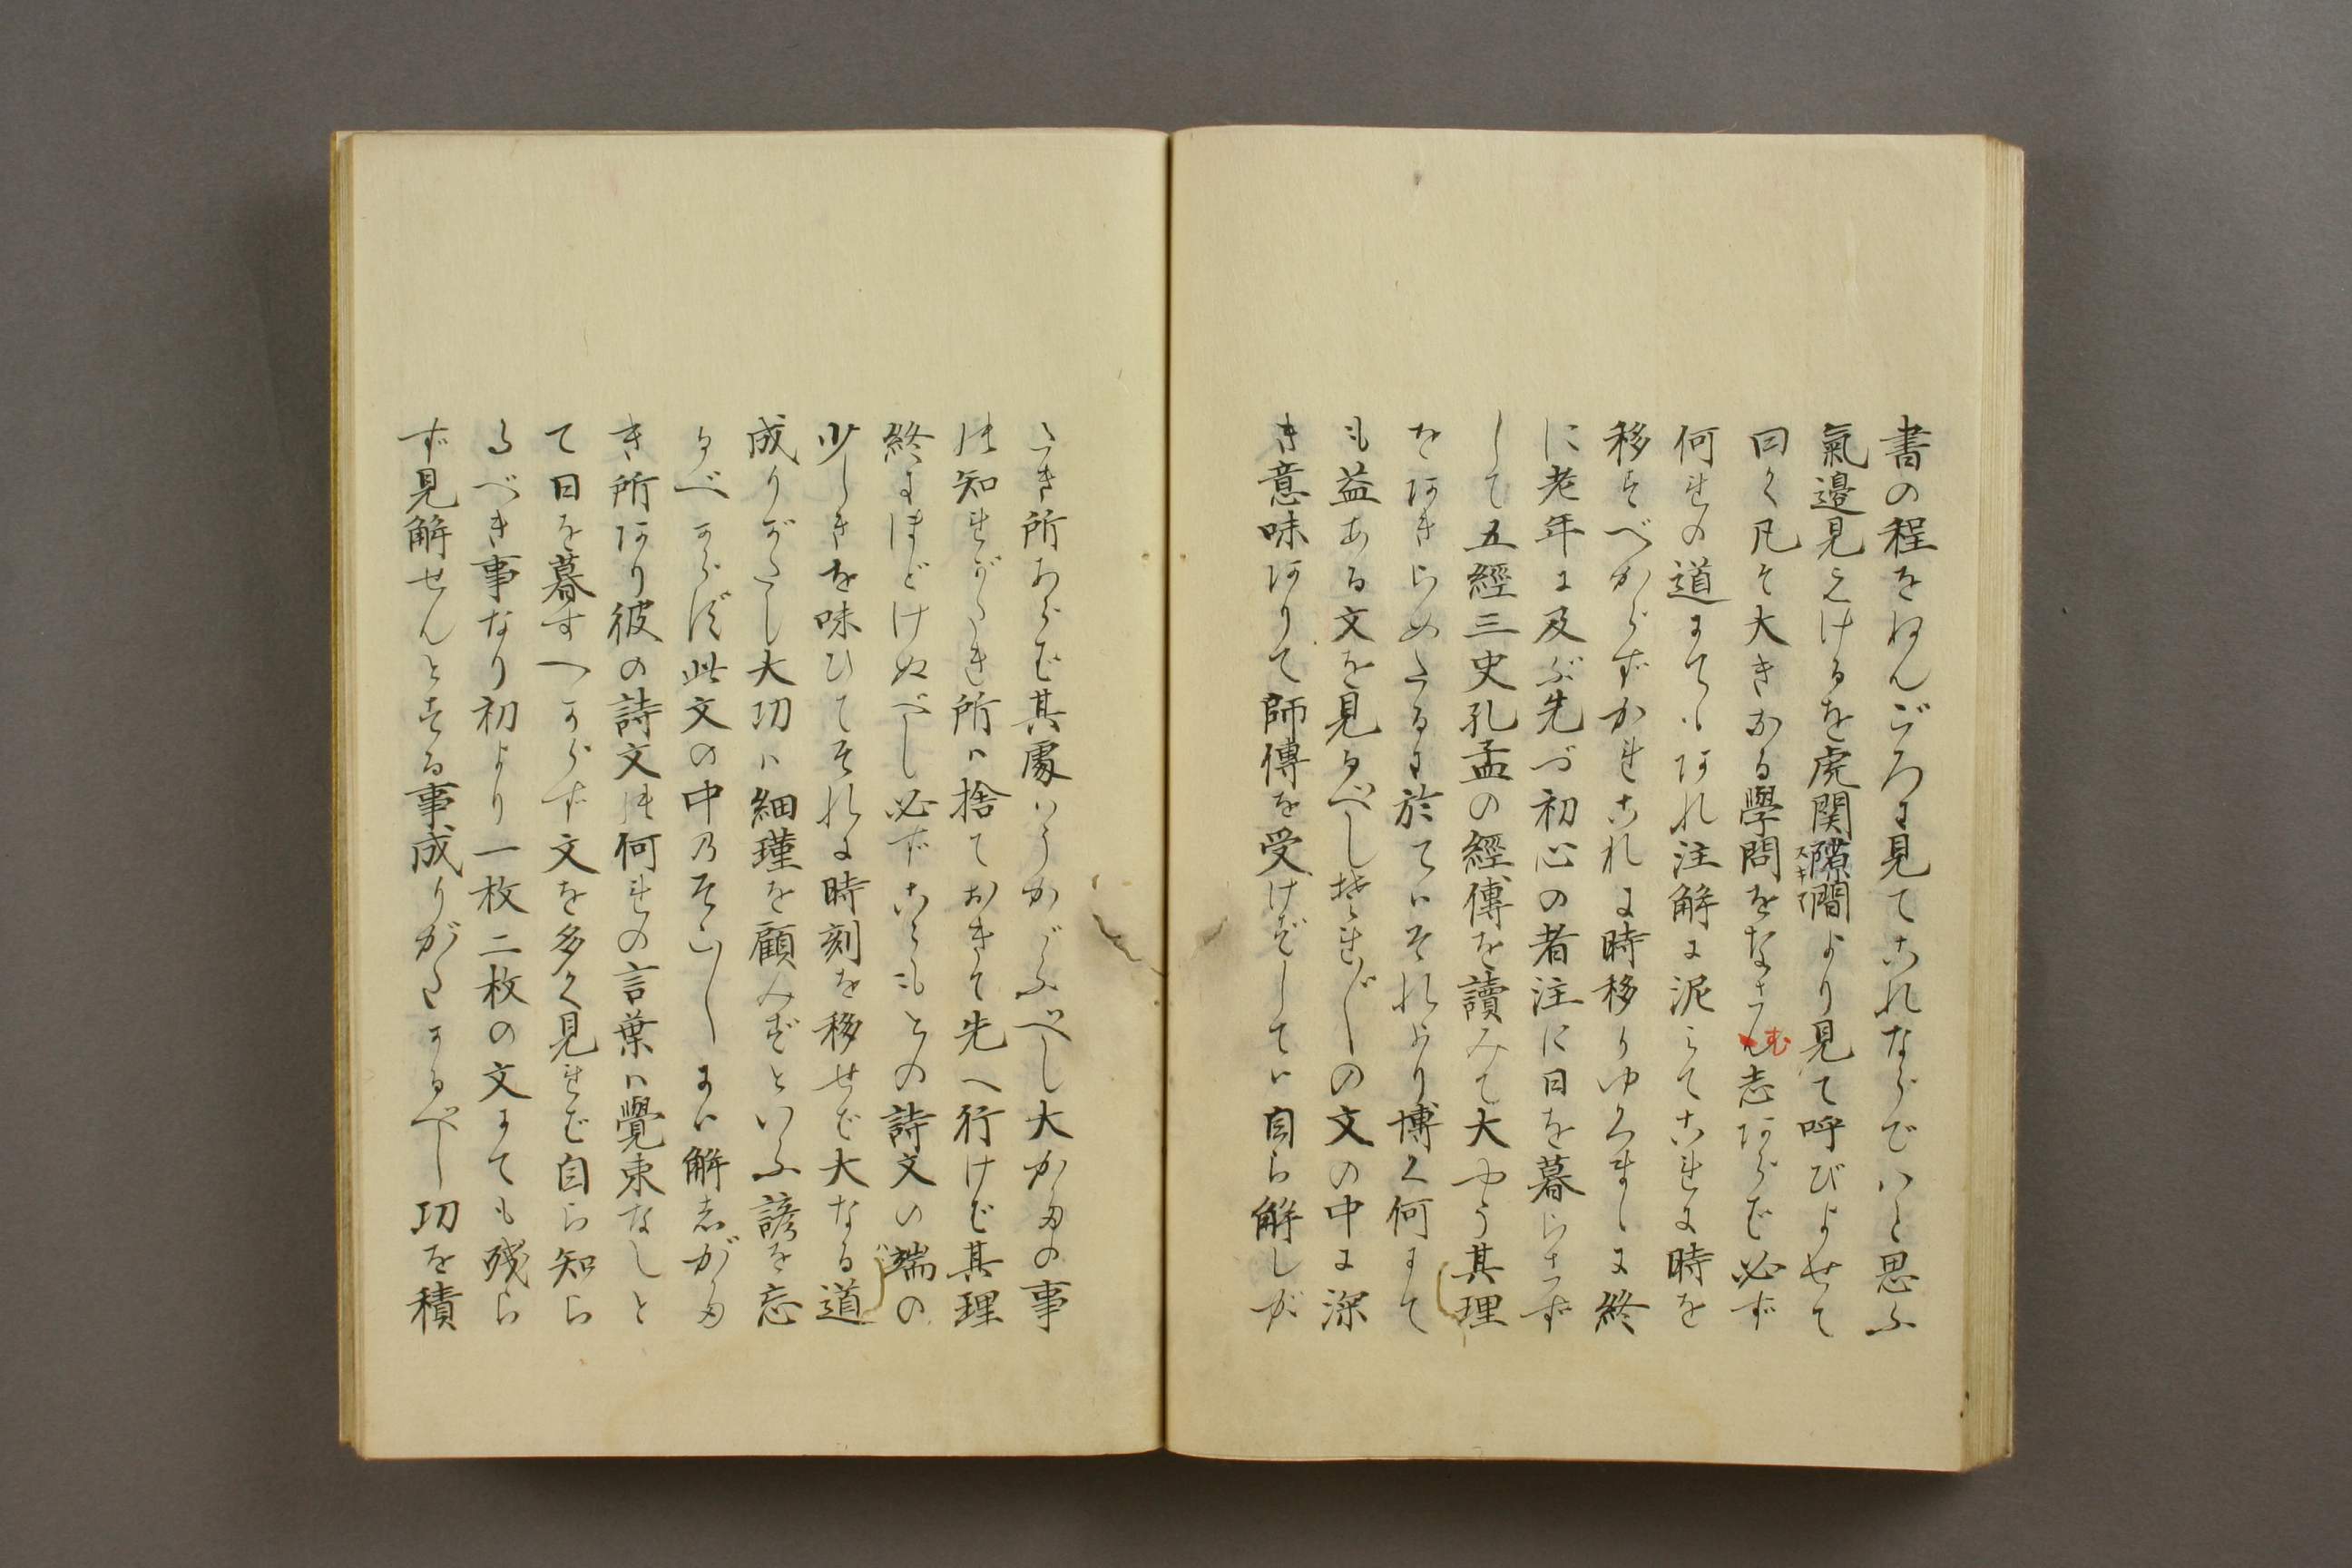 書の程をねんごろに見てこれならでハと思ふ
氣邊見えけるを虎関隙間より見て呼びよせて
曰く凡そ大きなる學問をなさむ志あらば必ず
何れの道にてもあれ注解に泥ミてこれに時を
移すべからずかれこれに時移りゆくまゝに終
に老年に及ぶ先づ初心の者注に日を暮らさず
して五經三史孔孟の經傳を讀みて大やう其理
をあきらめたるに於てハそれより博く何にて
も益ある文を見るべし されバ の文の中に深
き意味ありて師傳を受けずしてハ自ら解しが
たき所あらば其處はうかゞふべし大かたの事
は知れがたき所ハ捨ておきて先へ行けば其理
終にほどけぬべし必ずこゝもとの詩文の端の
少しきを味ひてそれに時刻を移せば大なる道
成りがたし大功ハ細瑾を顧みずといふ諺を忘
るべからず此文の中のそこ
しまハ解しがた
き所あり彼の詩文は何れの言葉ハ覺束なしと
て日を暮すへからず文を多く見れば自ら知ら
るべき事なり初より一枚二枚の文にても残ら
ず見解せんとする事成りがたかるべし功を積